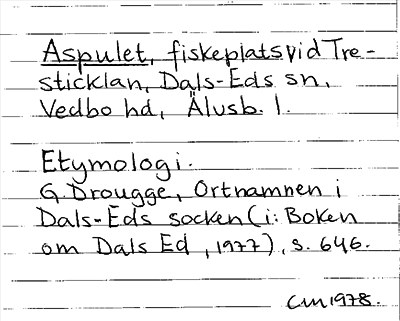 Aspulet, fiskeplats vid Tre-
sticklan, Dals-Eds sn,
Vedbo hd, Älvsb. l.
Etymologi.
G Drougge, Ortnamnen i
Dals-Eds socken (i: Boken
om Dals Ed, 1977), s. 646.
CM 1978.